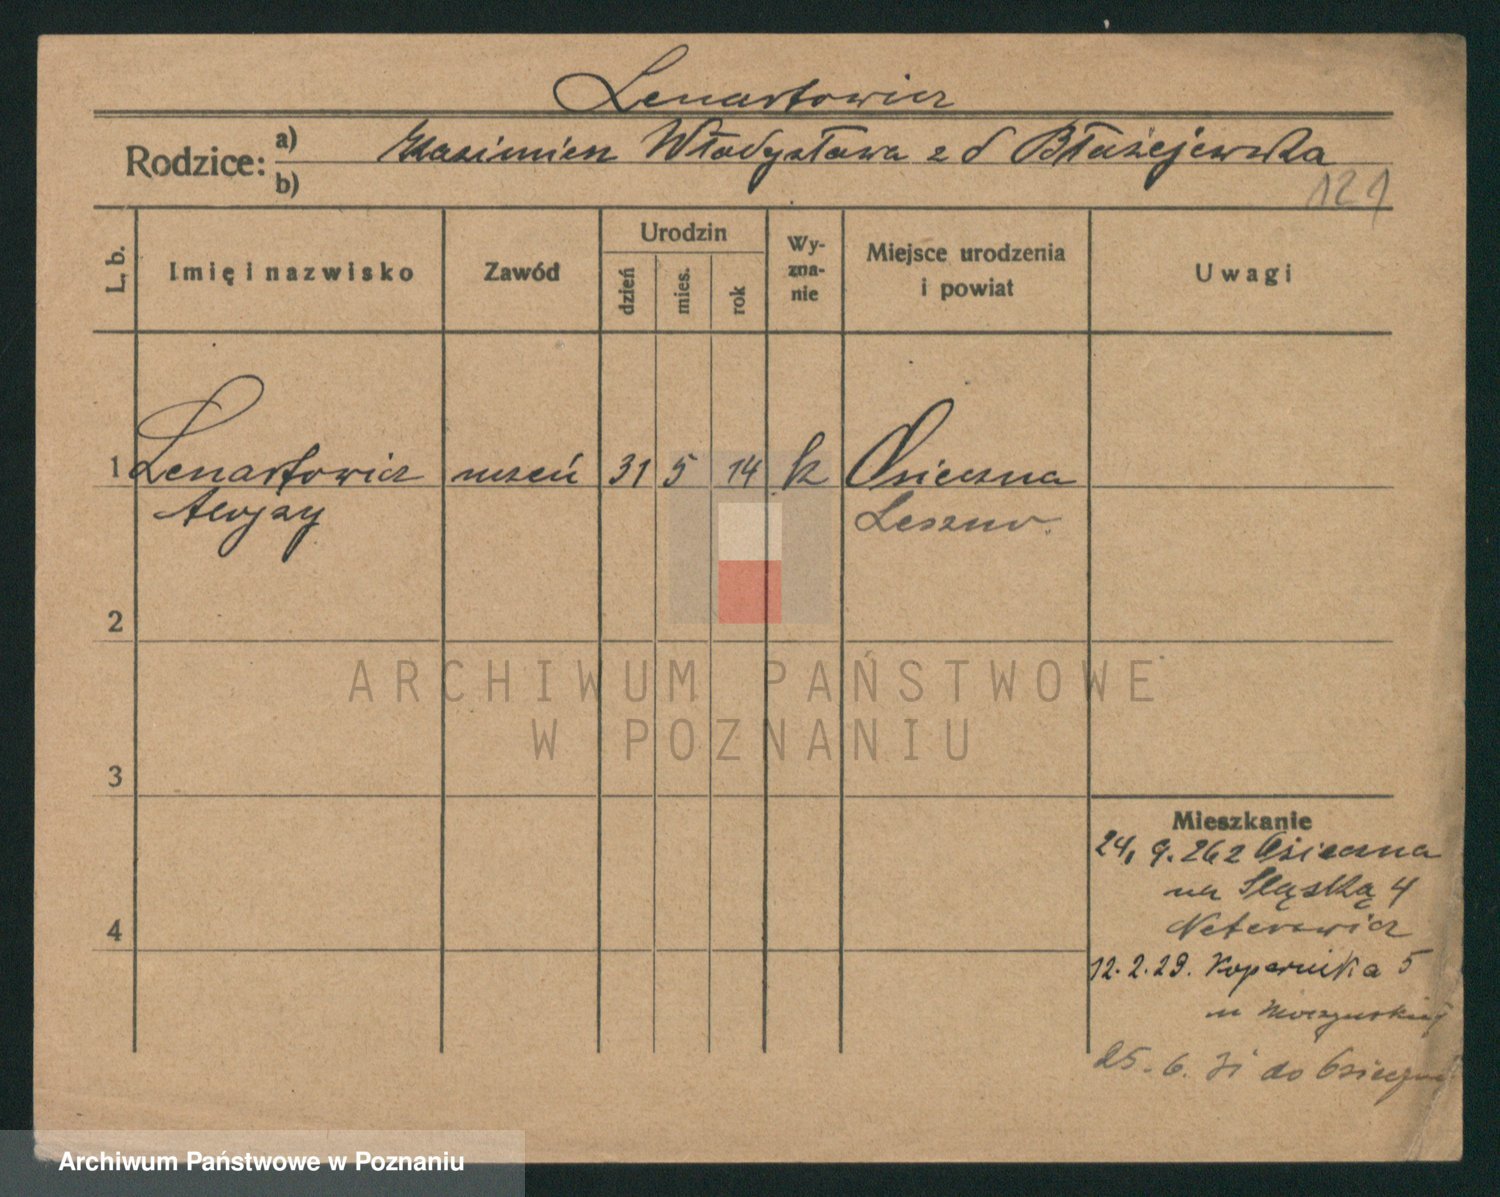 Lenartowicz
Rodzice: a) Kazimierz Władysława z d Błażejewska
b)
121
L. b.
Imię i nazwisko
Zawód
Urodzin
dzień
mies.
rok
Wy-
zna-
nie
Miejsce urodzenia
i powiat
Uwagi
1 Lenartowicz uczeń 31 5 14 k Osieczna
Alojzy Leszno.
2
3
4
ARCHIWUM PAŃSTWOWE
W POZNANIU
Mieszkanie
24, 9. 26 z Osieczna
na Śląską 4
12. 2. 29. Kopernika 5
u
25. 6. 31 do Osieczny
Archiwum Państwowe w Poznaniu